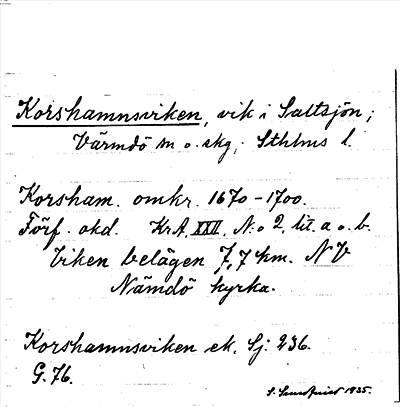 Korshamnsviken, vik i Saltsjön;
Värmdö sn o. skg; Sthlms l.
Korsham. omkr. 1670-1700.
Förf. okd. KrA, XXII, N:o 2, lit. a o. b.
Viken belägen 7,7 km. NV
Nämdö kyrka.
Korshamnsviken ek. Sj. 236.
G. 76.
S. 1935.